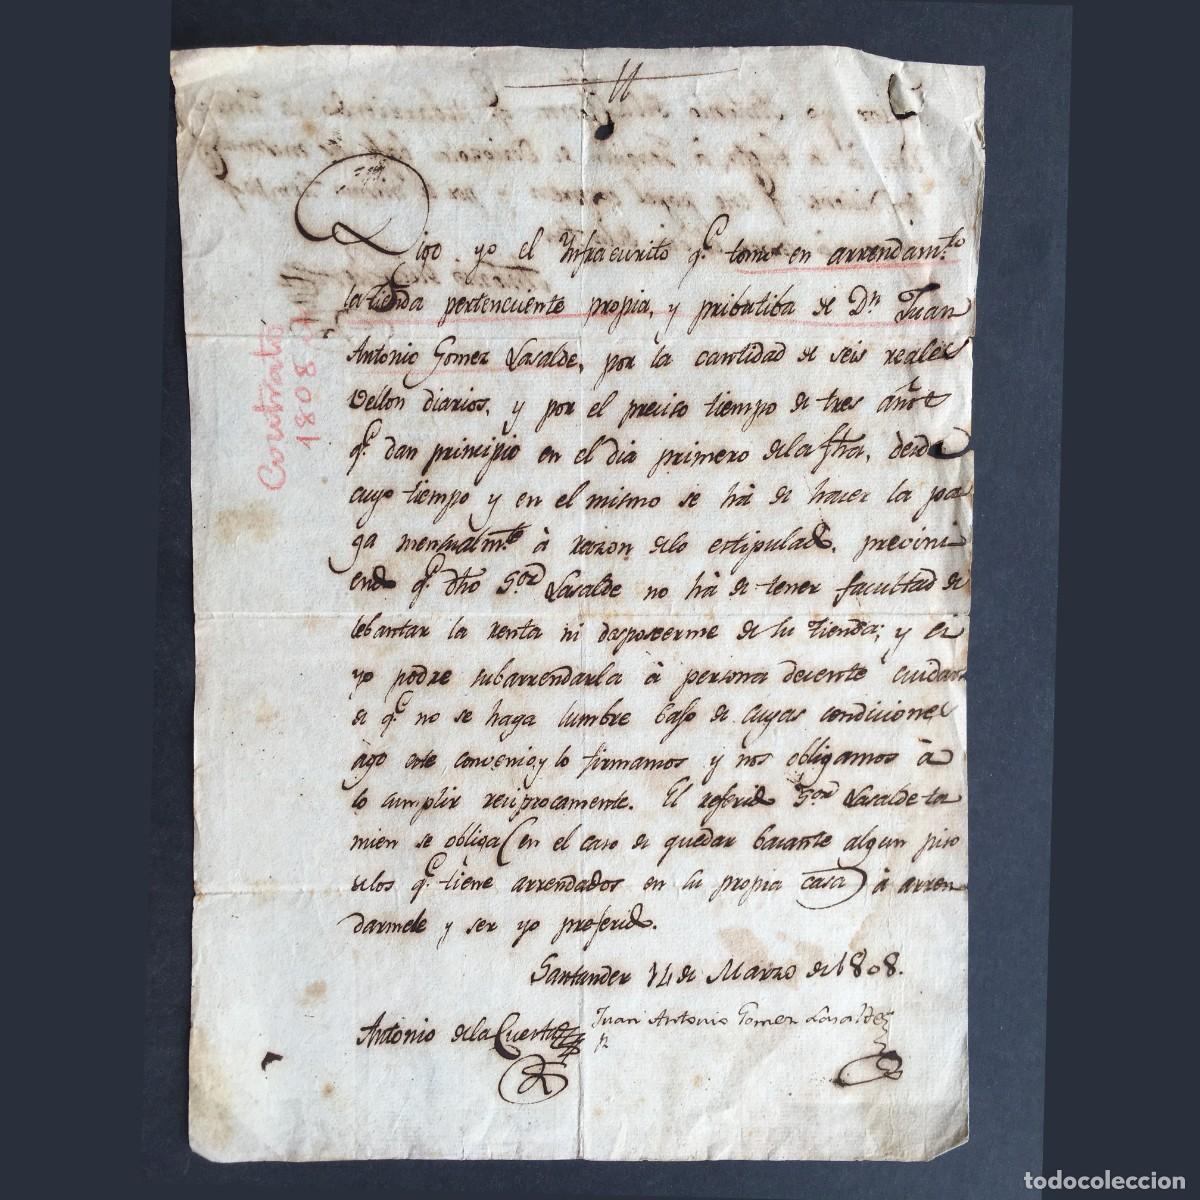 Digo yo el Infraescrito q.e tomé en arrendam.to
la tienda pertenciente propia, y pribatiba de D.n Juan
Antonio Gomez Lasalde, por la cantidad de seis reales
vellon diarios, y por el preciso tiempo de tres años
q.e dan principio en el dia primero dela fha, desde
cuyo tiempo y en el mismo se há de hacer la pa
ga mensualm.te à razon delo estipulado, previni
endo q.e dho S.or Lasalde no há de tener facultad de
lebantar la renta ni desposeerme de su tienda; y si
yo podre subarrendarla à persona decente cuidando
de q.e no se haga lumbre baso de cuyas condiciones
ago este convenio, y lo firmamos y nos obligamos à
lo cumplir reciprocamente. El referido S.or Lasalde ta
mien se obliga (en el caso de quedar bacante algun piso
delos q.e tiene arrendados en su propia casa) à arren
darmele y ser yo preferido.
Santander 14 de Marzo de 1808.
Antonio dela Cuesta
Juan Antonio Gomez Lasalde
Contrato
1808
todocoleccion